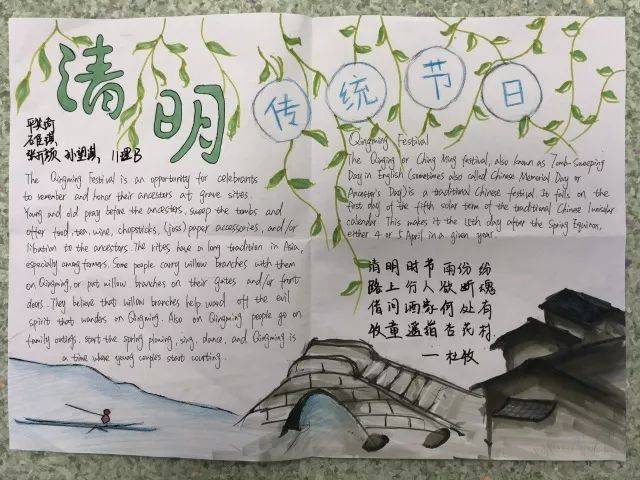 清明
传统节日
孙塑淇, 11理B
The Qingming Festival is an opportunity for celebrants
to remember and honor their ancestors at grave sites.
Young and old pray before the ancestors, sweep the tombs and
offer food, tea, wine, chopsticks, (joss) paper accessories, and/or
libation to the ancestors. The rites have a long tradition in Asia,
especially among farmers. Some people carry willow branches with them
on Qingming, or put willow branches on their gates and/or front
doors. They believe that willow branches help ward off the evil
spirit that wanders on Qingming. Also on Qingming people go on
family outings, start the spring plowing, sing, dance, and Qingming is
a time where young couples start courting.
Qingming Festival
The Qingming or Ching Ming festival, also known as Tomb-Sweeping
Day in English (sometimes also called Chinese Memorial Day or
Ancestor's Day) is a traditional Chinese festival. It falls on the
first day of the fifth solar term of the traditional Chinese lunisolar
calendar. This makes it the 15th day after the Spring Equinox,
either 4 or 5 April in a given year.
清明时节雨份纷
路上行人欲断魂
借问酒家何处有
牧童遥指杏花村
—杜牧